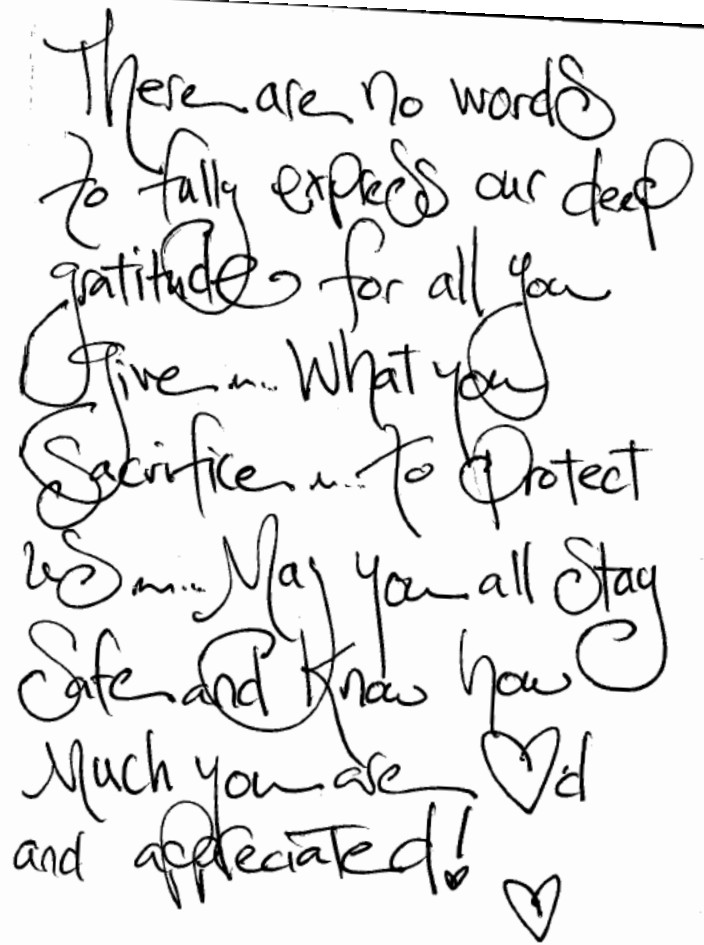 There are no words
to fully express our deep
gratitude for all you
Give..... What you
Sacrifice..... to Protect
us..... May you all Stay
Safe and Know how
Much you are ♥d
and appreciated!
♥